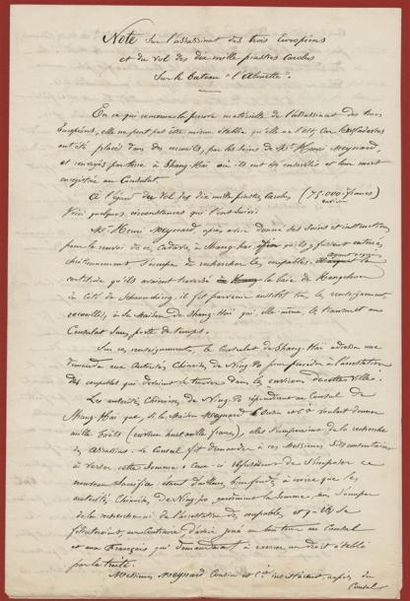 Note sur l'assassinat des trois Européens
et du vol des dix mille piastres Carolus
sur le bateau "l'Alouette".
En ce qui concerne la preuve matérielle de l'assassinat des trois
Européens, elle ne peut pas être mieux établie qu'elle ne l'est, car les cadavres
ont été placés dans des cercueils, par les soins de Mr Henri Meynard,
et envoyés par terre à Shang-Haï où ils ont été enterrés et leur mort
enregistrée au Consulat.
À l'égard du vol des dix mille piastres Carolus (75.000 francs)
environ
Voici quelques circonstances qui l'ont suivi
Mr Henri Meynard après avoir donné des soins et instructions
pour le renvoi de ces cadavres à Shang-haï où ils fussent enterrés
chrétiennement s'occupa de rechercher les coupables,
certitude qu'ils avaient traversé la baie de Hangchow
à côté de il fit parvenir aussitôt tous les renseignements
recueillis, à la Maison de Shang-Haï qui, elle-même, les transmit au
Consulat sans perte de temps.
Sur ces renseignements, le Consulat de Shang-Haï adressa une
demande aux Autorités Chinoises de Ning-po pour procéder à l'arrestation
des coupables qui devaient se trouver dans les environs de cette ville.
Les autorités Chinoises de Ning-po répondirent au Consul de
Shang-Haï que, si la Maison Meynard Cousin et Cie voulait donner
mille taëls (environ huit mille francs), elles s'occuperaient de la recherche
des assassins. Le Consul fit demander à ces Messieurs s'ils consentiraient
à verser cette somme; ceux-ci refusèrent de s'imposer ce
nouveau sacrifice étant d'ailleurs bien fondés à croire que les
autorités Chinoises de Ning-po, garderaient la somme, sans s'occuper
de la recherche ni de l'arrestation des coupables et qu'elles se
féliciteraient, au contraire d'avoir joué un bon tour au Consul
et aux Français qui demandaient à exercer un droit établi
par le traité.
Messieurs Meynard Cousin et Cie insistèrent, auprès du
Consul